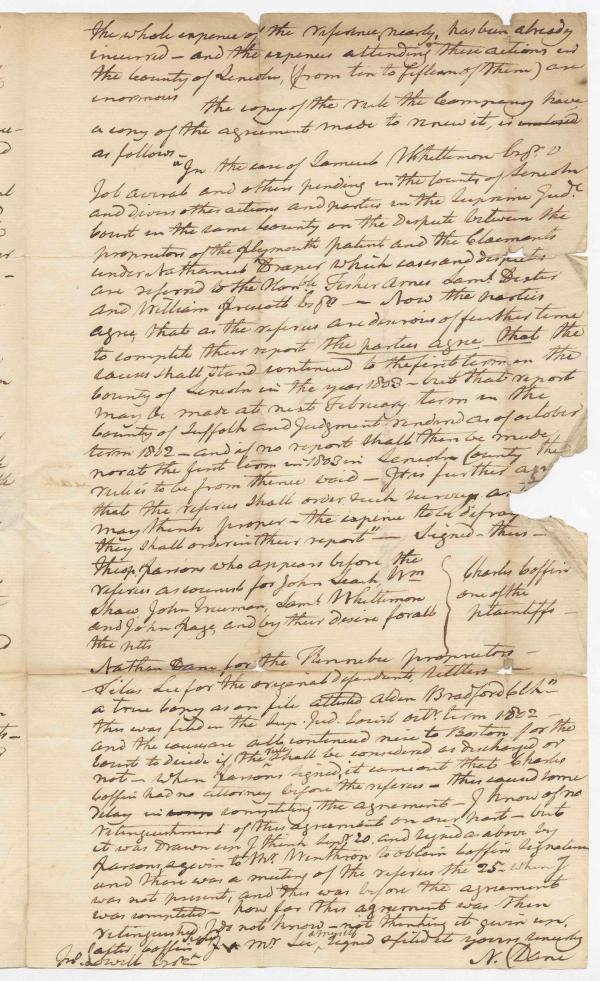 The whole expence of the reference, nearly, has been already
incurred – and the expences attending these actions in
the County of Lincoln, (from ten to fifteen of them) are
enormous the copy of the rule the Company have
a copy of the agreement made to renew it, is inclosed
as follows –
"In the case of Samuel Whittemore Esqr. v
Job Averal and others pending in the County of Lincoln
and divers other actions and parties in the Supreme Judl.
Court in the same County on the Dispute between the
proprietors of the Plymouth patent and the Claimants
under Nathaniel Draper which cases and disputes
are referred to the Honble Fisher Ames Saml. Dexter
and William Prescott Esqrs – Now the parties
agree, that as the referees are desirous of further time
to complete their report the parties agree that the
causes shall stand continued to the first term in the
County of Lincoln in the year 1803 – but that report
may be made at next February term in the
County of Suffolk and Judgment rendered as of october
term 1802 – and if no report shall then be made
nor at the first term in 1803 in Lincoln County the
rule is to be from thence void – It is further
that the referees shall order such surveys as
may think proper – the expence to be
they shall order in their report" – Signed – thus –
Theop. Parsons who appears before the
referees as council for John Leach Wm
Shaw John Freeman, Saml. Whittemore
and John Page, and by their desire for all
the plts
Charles Coffin
one of the
plaintiffs –
Nathan Dane for the Kennebec proprietors –
Silas Lee for the original defendants, settlers –
a true copy as on file attested Alden Bradford Clk" –
this was filed in the Sup. Jud. Court octr. term 1802
and the causes are all continued nisi to Boston for the
Court to decide if the rule shall be considered as discharged or
not – when Parsons signed, it came out that Charles
Coffin had no attorney before the referees – this caused some
delay in completing the agreement – I know of no
relinquishment of this agreement on our part – but
it was drawn up I think Sepr. 20 and signed as above by
Parsons, & given to Mr. Winthrop to obtain Coffins signature
and there was a meeting of the referees the 25 – when I
was not present, and this was before the agreement
was completed – how far this agreement was then
relinquished I do not know – not thinking it given up,
after Coffin signed I & Mr. Lee signed & filed it yours, sincerely
Jno. Lowell Esqr.
N. Dane